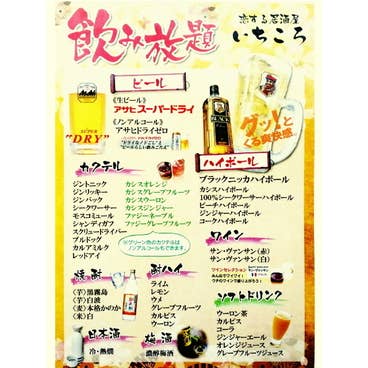 飲み放題
恋する居酒屋
いちころ
ビール
《生ビール》
アサヒスーパードライ
《ノンアルコール》
アサヒドライゼロ
"ドライなノドごし"と
"ビールらしい飲みごたえ"
SUPER
"DRY"
グッ!と
くる爽快感。
カクテル
ジントニック
ジンリッキー
ジンバック
シークワーサー
モスコミュール
シャンディガフ
スクリュードライバー
ブルドッグ
カルアミルク
レッドアイ
カシスオレンジ
カシスグレープフルーツ
カシスウーロン
カシスジンジャー
ファジーネーブル
ファジーグレープフルーツ
※グリーン色のカクテルは
ノンアルコールもできます。
ハイボール
ブラックニッカハイボール
カシスハイボール
100%シークワーサーハイボール
ピーチハイボール
ジンジャーハイボール
コークハイボール
ワイン
サン・ヴァンサン(赤)
サン・ヴァンサン(白)
ワインセレクション
焼酎
(芋)黒霧島
(芋)白波
(麦)本格かのか
(米)白
酎ハイ
ライム
レモン
ウメ
グレープフルーツ
カルピス
ウーロン
ソフトドリンク
ウーロン茶
カルピス
コーラ
ジンジャーエール
オレンジジュース
グレープフルーツジュース
日本酒
冷・熱燗
梅酒
濃醇梅酒